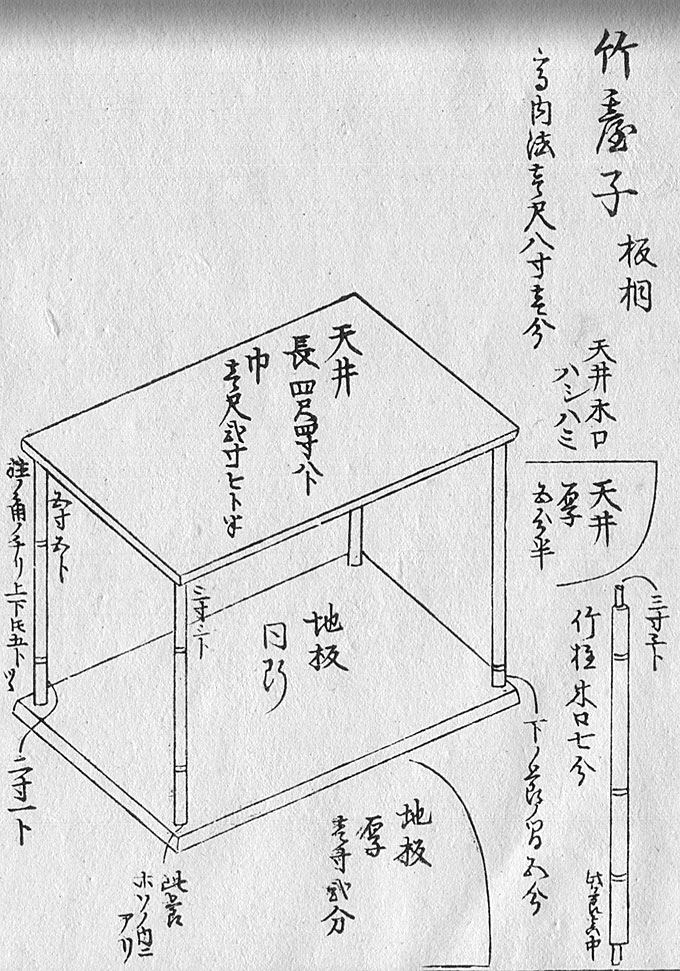 竹臺子
板桐
高内法壱尺八寸壱分
天井木口
ハシハミ
天井
厚
五分半
天井
長四尺四寸八卜
巾
壱尺弐寸七卜半
五寸五卜
三寸三卜
地板
同断
三寸三卜
竹柱木口七分
下ノ節ヨリ五分
二寸一卜
地板
厚
壱寸弐分
此節
ホソノ内ニ
アリ